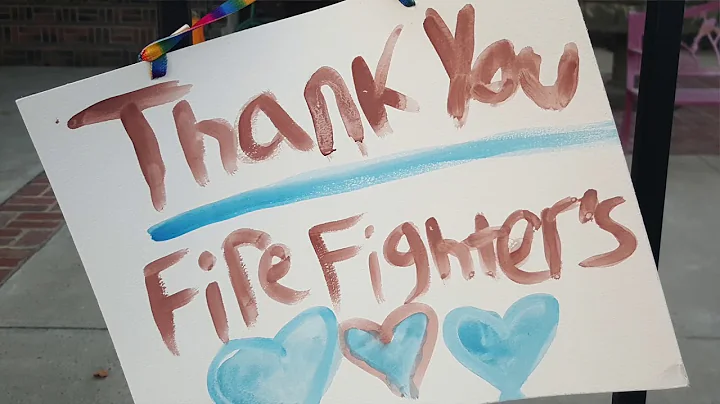 Thank You
Fire Fighter's